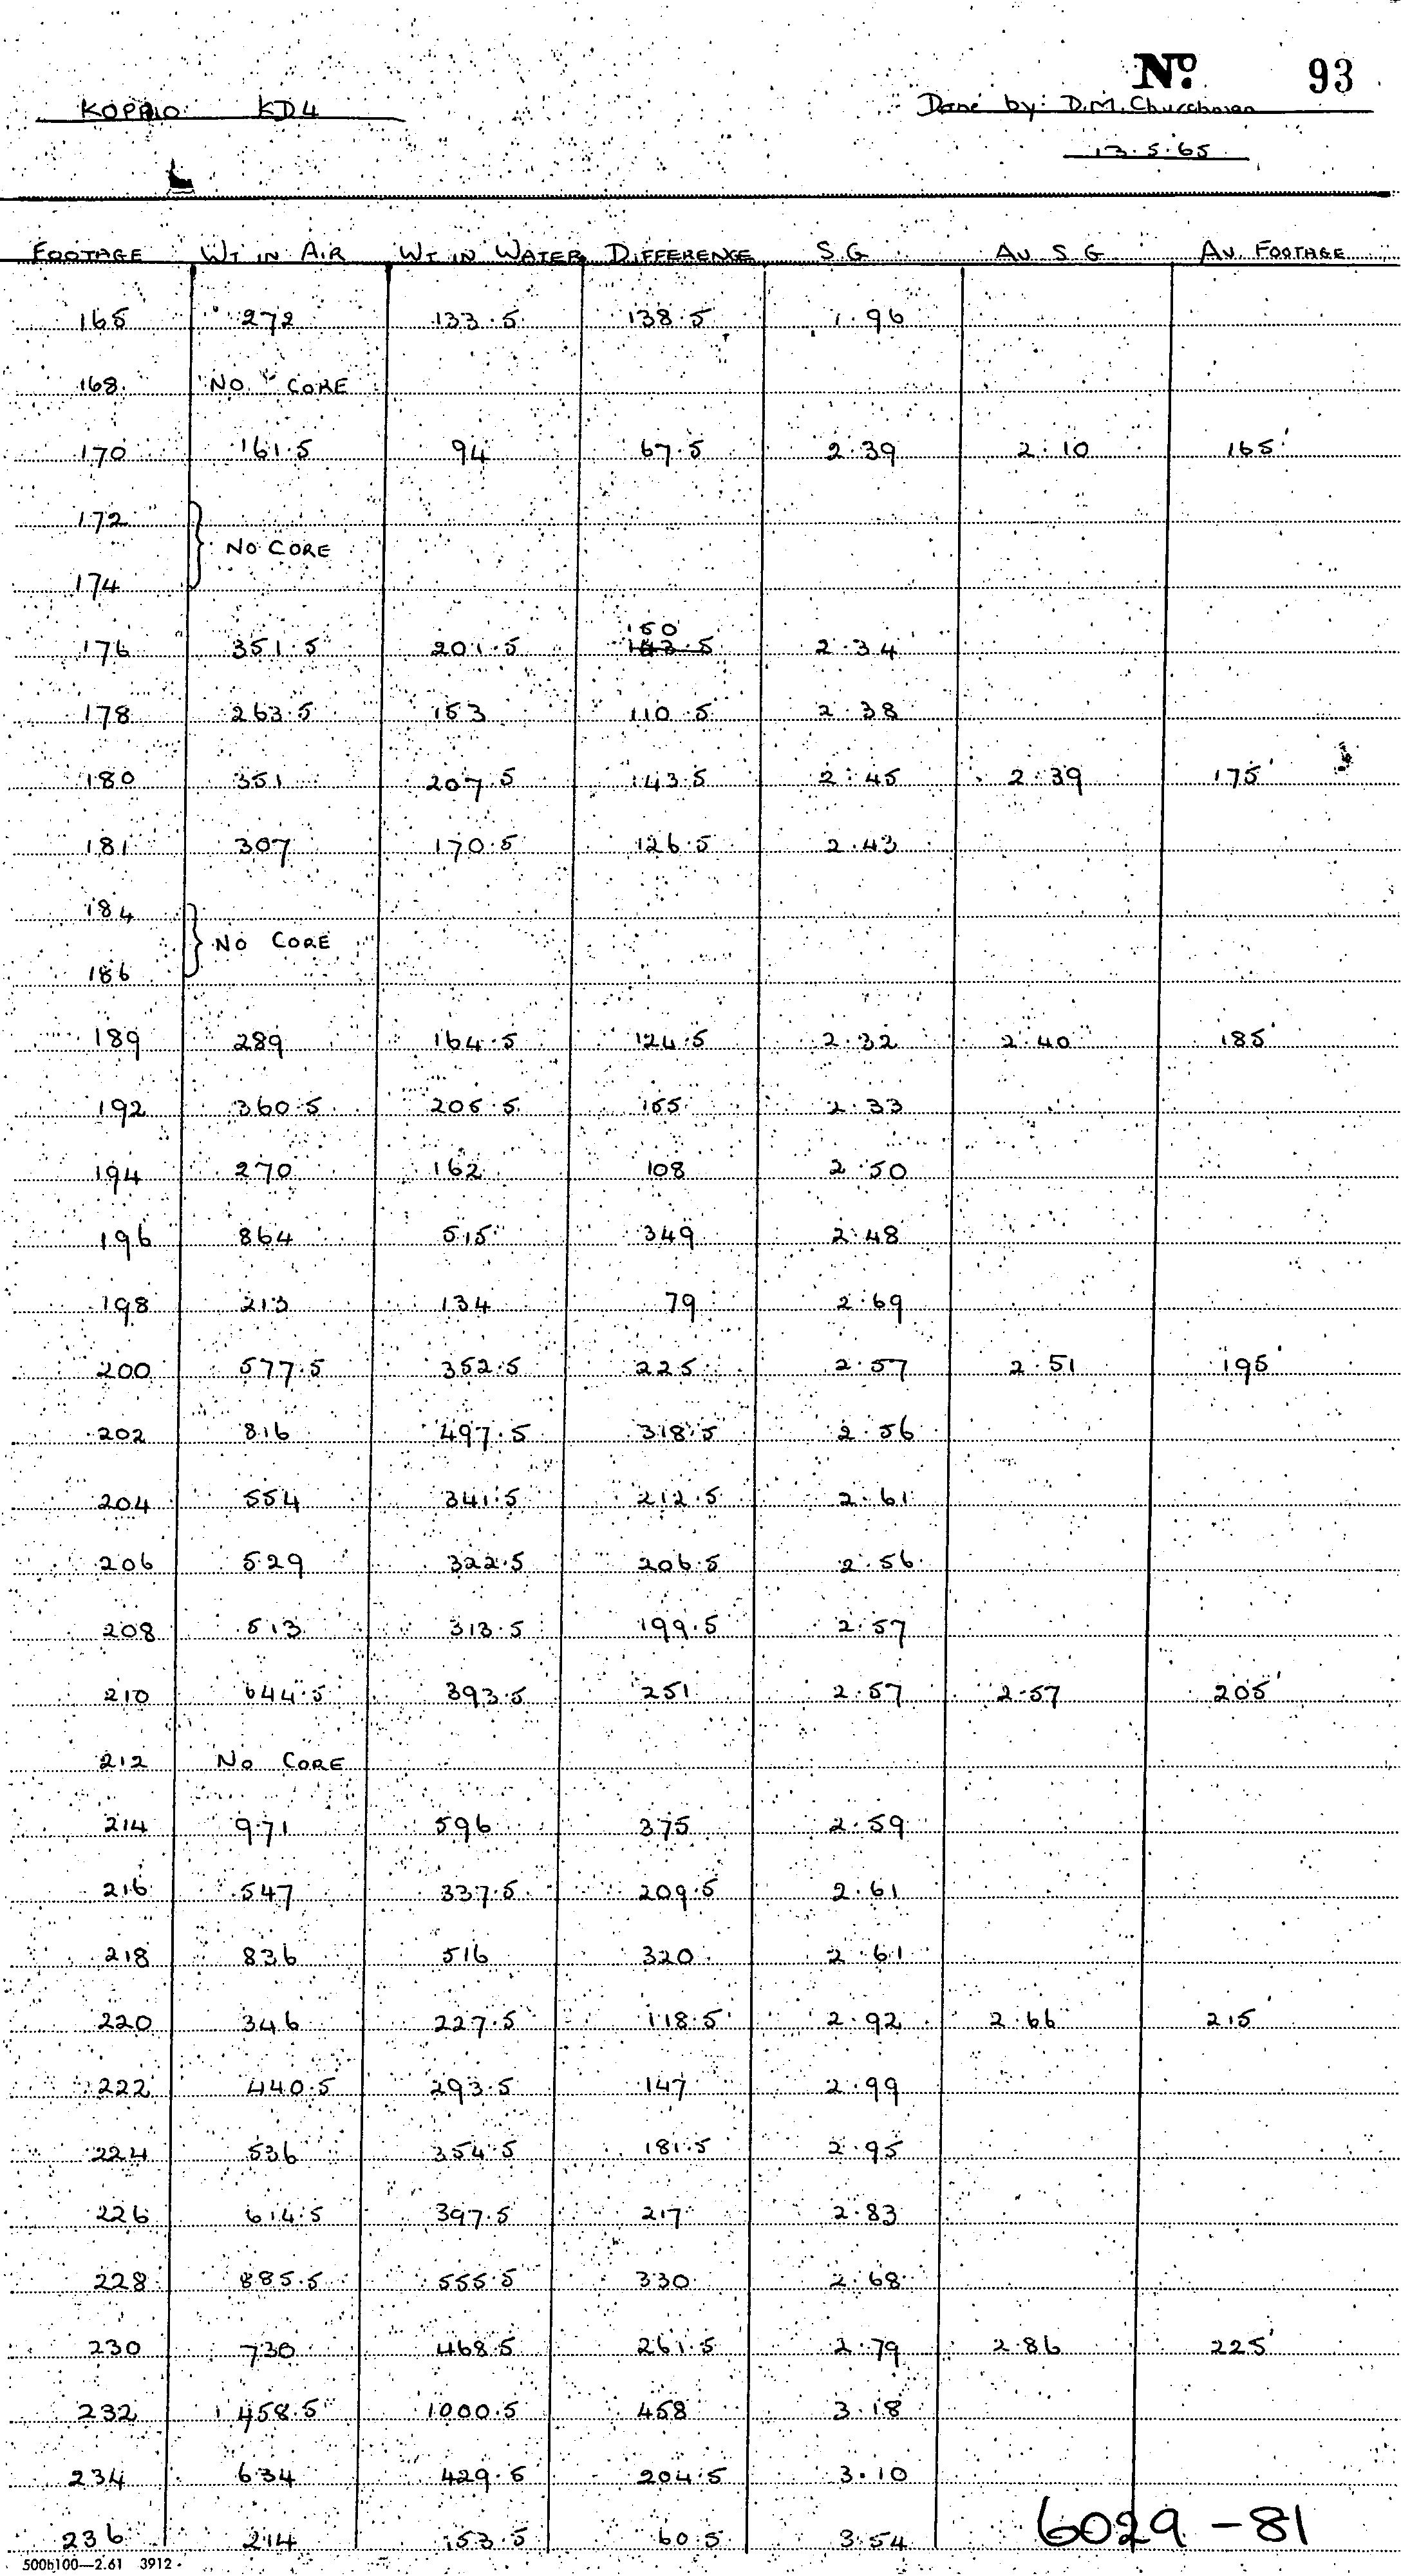 Nº 93
KOPPIO KD4 Done by: D.M. Churchman
13.5.65
FOOTAGE WT IN AIR WT IN WATER DIFFERENCE S.G AV S G AV. FOOTAGE
165 272 133.5 138.5 1.96
168 NO CORE
170 161.5 94 67.5 2.39 2.10 165'
172
NO CORE
174
150
176 351.5 201.5 143.5 2.34
178 263.5 153 110.5 2.38
180 351 207.5 143.5 2.45 2.39 175'
181 307 170.5 126.5 2.43
184
NO CORE
186
189 289 164.5 124.5 2.32 2.40 185'
192 360.5 205.5 155 2.33
194 270 162 108 2.50
196 864 515 349 2.48
198 213 134 79 2.69
200 577.5 352.5 225 2.57 2.51 195'
202 816 497.5 318.5 2.56
204 554 341.5 212.5 2.61
206 529 322.5 206.5 2.56
208 513 313.5 199.5 2.57
210 644.5 393.5 251 2.57 2.57 205'
212 NO CORE
214 971 596 375 2.59
216 547 337.5 209.5 2.61
218 836 516 320 2.61
220 346 227.5 118.5 2.92 2.66 215'
222 440.5 293.5 147 2.99
224 536 354.5 181.5 2.95
226 614.5 397.5 217 2.83
228 885.5 555.5 330 2.68
230 730 468.5 261.5 2.79 2.86 225'
232 1458.5 1000.5 458 3.18
234 634 429.5 204.5 3.10
236 214 153.5 60.5 3.54
6029-81
500b100—2.61 3912